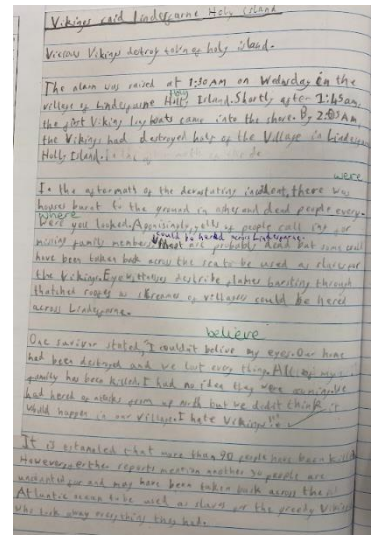 Vikings raid Lindesfarne Holy Island
Vicious Vikings destroy town of holy island.
The alarm was raised at 1:30AM on Wednsday in the
village of Lindesfarne Holy Island. Shortly after 1:45am,
the first Viking longboats came into the shore. By 2:05AM
the Vikings had destroyed half of the Village in Lindesfarn
Holly Island.
were
In the aftermath of the devastating incident, there was
houses burnt to the ground in ashes and dead people every-
where
were you looked. yells of people calling for
could be hered across Lindesfarne.
missing family members that are probably dead but some could
have been taken back across the sea to be used as slaves for
the Vikings. Eyewitnesses describe flames bursting through
thatched roofs as screams of villages could be hered
across Lindesfarne.
believe
One surivor stated, "I couldn't belive my eyes. Our home
had been destroyed and we lost every thing. All of my
family has been killed. I had no idea they were coming. We
had hered of attacks from up north but we didn't think it
would happen in our village. I hate Vikings!"
It is estamated that more than 90 people have been killed
However, further reports mention another 30 people are
unacounted for and may have been taken back across the
Atlantic ocean to be used as slaves for the greedy Vikings
who took away everything they had.